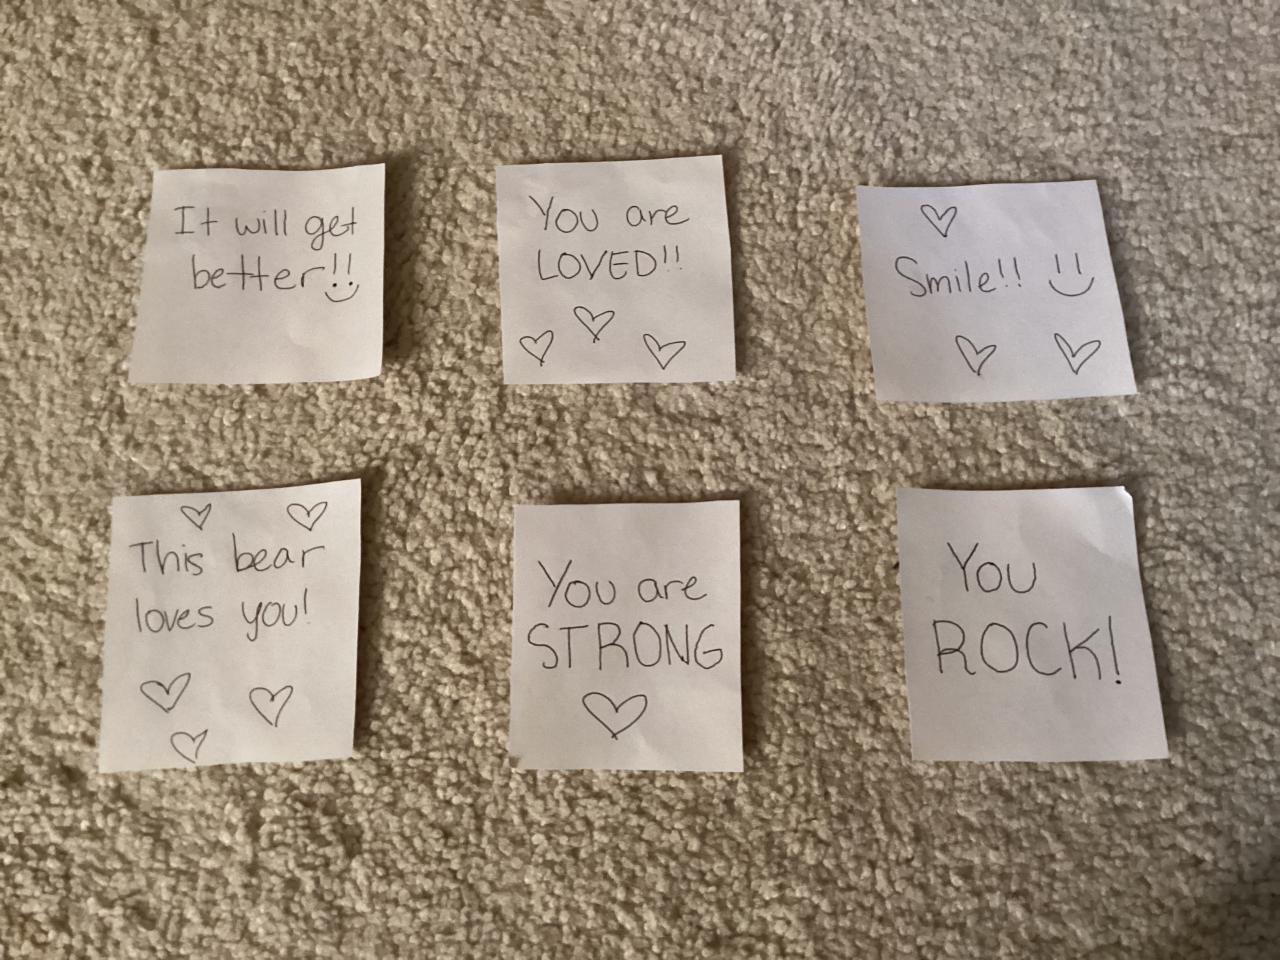 It will get
better!!
You are
LOVED!!
Smile!!
This bear
loves you!
You are
STRONG
You
ROCK!